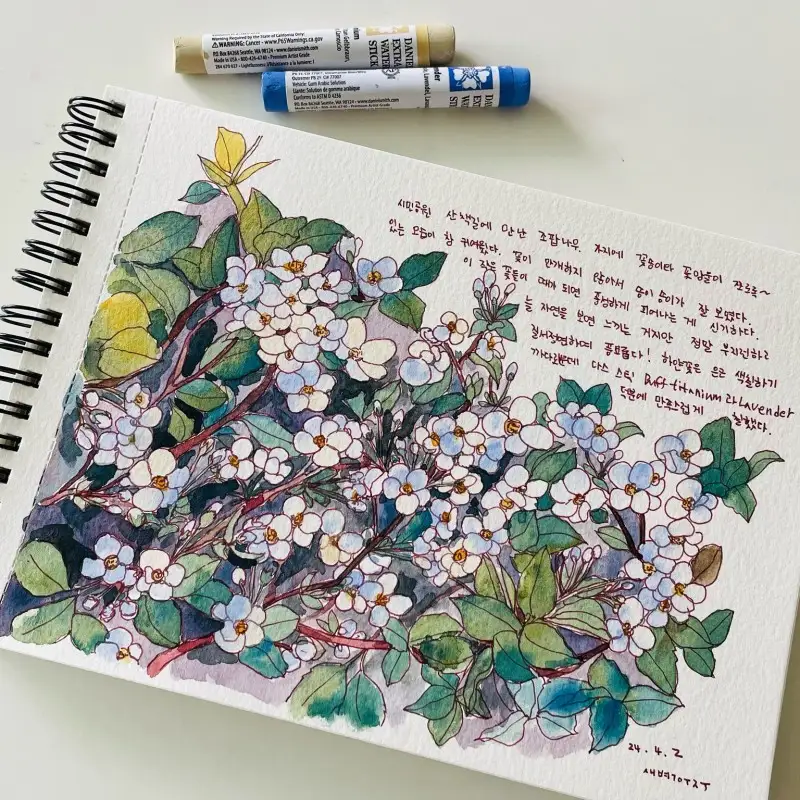 Warning Required by the State of California Only:
WARNING: Cancer - www.P65Warnings.ca.gov
PO Box 84268 Seattle, WA 98124 - www.danielsmith.com
Made in USA - 800-426-6740 - Premium Artist Grade
DANIEL
EXTRA
WATER
STICK
Vehicle: Gum Arabic Solution
Liante: Solution de gomme arabique
Conforms to ASTM D 4236
PO Box 84268 Seattle, WA 98124 - www.danielsmith.com
Made in USA - 800-426-6740 - Premium Artist Grade
DANIE
EXTRA
WATER
STICK
시민공원 산책길에 만난 조팝나무. 가지에 꽃송이랑 꽃망울이 조로록~
있는 모습이 참 귀여웠다. 꽃이 만개하지 않아서 송이 송이가 잘 보였다.
이 작은 꽃들이 때가 되면 풍성하게 피어나는 게 신기하다.
늘 자연을 보면 느끼는 거지만 정말 부지런하고
질서정연하며 풍요롭다! 하얀꽃은 은근 색칠하기
까다로운데 다스 스틱 Buff titanium 과 Lavender
덕분에 만족스럽게 칠했다.
24. 4. 2